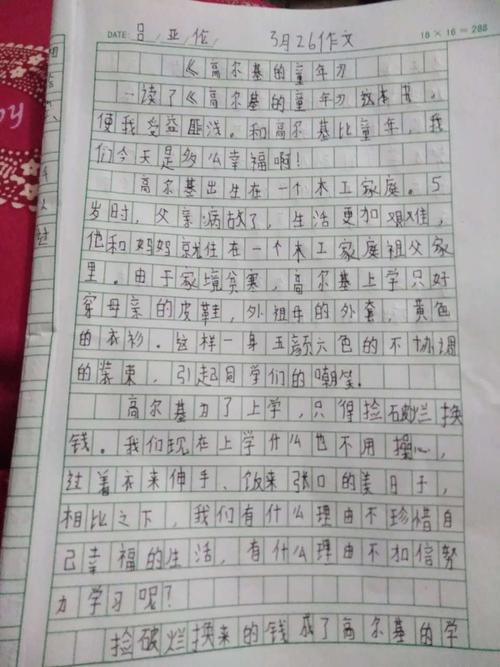 DATE: 吕亚伦 3月26作文 18 × 16 = 288
《高尔基的童年》
一读了《高尔基的童年》这本书，
便我受益匪浅。和高尔基比童年，我
们今天是多么幸福啊！
高尔基出生在一个木工家庭。5
岁时，父亲病故了，生活更加艰难，
他和妈妈就住在一个木工家庭祖父家
里。由于家境贫寒，高尔基上学只好
穿母亲的皮鞋，外祖母的外套，黄色
的衣衫。这样一身五颜六色的不协调
的装束，引起同学们的嘲笑。
高尔基为了上学，只得捡破烂换
钱。我们现在上学什么也不用操心，
过着衣来伸手、饭来张口的美日子，
相比之下，我们有什么理由不珍惜自
己幸福的生活，有什么理由不加倍努
力学习呢？
捡破烂换来的钱成了高尔基的学